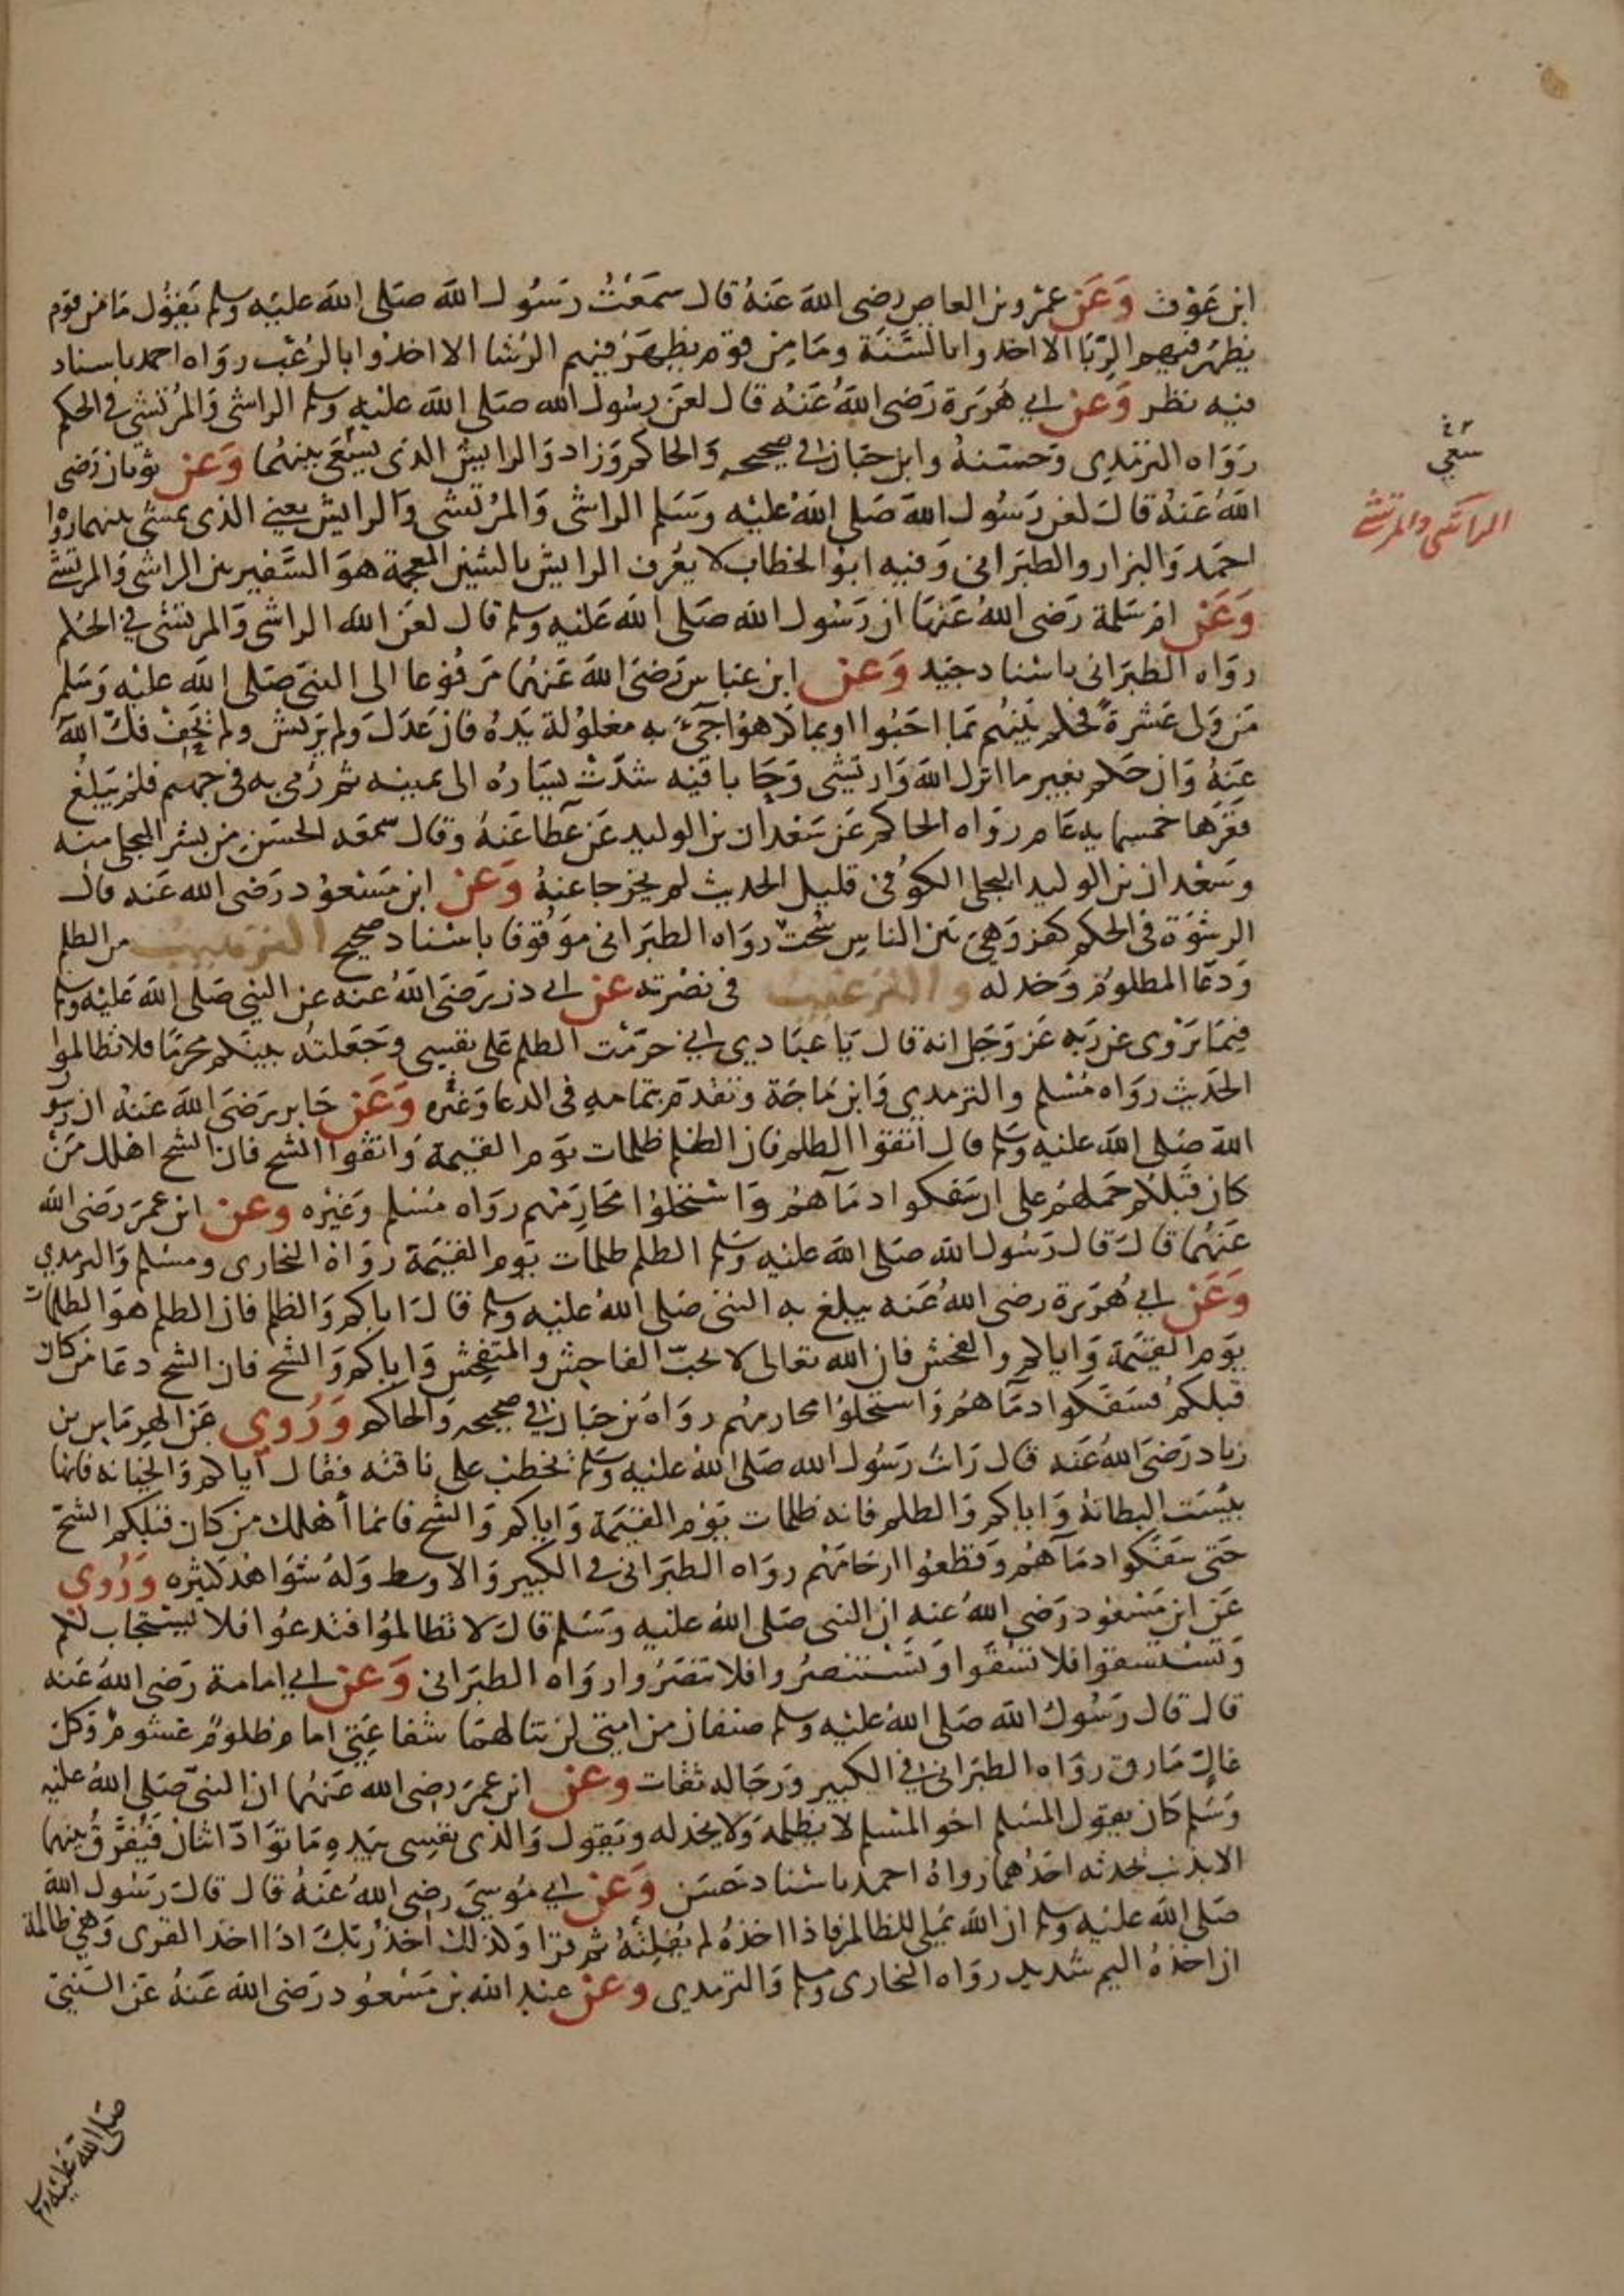 ابن عوف وعن عمرو بن العاص رضى الله عنه قال سمعت رسول الله صلى الله عليه وسلم يقول ما من قوم
يظهر فيهم الربا الا اخذوا بالسنة وما من قوم يظهر فيهم الرشا الا اخذوا بالرعب رواه احمد باسناد
فيه نظر وعن ابي هريرة رضى الله عنه قال لعن رسول الله صلى الله عليه وسلم الراشى والمرتشى في الحكم
رواه الترمذى وحسنه وابن حبان في صحيحه والحاكم وزاد والرايش الذى يسعى بينهما وعن ثوبان رضى
الله عنه قال لعن رسول الله صلى الله عليه وسلم الراشى والمرتشى والرايش يعني الذى يمشى بينهما رواه
احمد والبزار والطبرانى وفيه ابو الخطاب لا يعرف الرايش بالشين المعجمة هو السفير بين الراشى والمرتشى
وعن ام سلمة رضى الله عنها ان رسول الله صلى الله عليه وسلم قال لعن الله الراشى والمرتشى في الحكم
رواه الطبرانى باسناد جيد وعن ابن عباس رضى الله عنهما مرفوعا الى النبى صلى الله عليه وسلم
من ولى عشرة فحكم بينهم بما احبوا او بما كرهوا جئ به مغلولة يده فان عدل ولم يرتش ولم يحف فك الله
عنه وان حكم بغير ما انزل الله وارتشى وحابا فيه شدت يساره الى يمينه ثم رمى به فى جهنم فلم يبلغ
قعرها خمسماية عام رواه الحاكم عن سعدان بن الوليد عن عطا عنه وقال سمعه الحسن بن بشر البجلى منه
وسعدان بن الوليد البجلى الكوفى قليل الحديث لم يخرجا عنه وعن ابن مسعود رضى الله عنه قال
الرشوة فى الحكم كفر وهى بين الناس سحت رواه الطبرانى موقوفا باسناد صحيح الترهيب من الظلم
ودعا المظلوم وخذله والترغيب فى نصرته عن ابى ذر رضى الله عنه عن النبي صلى الله عليه وسلم
فيما يروى عن ربه عز وجل انه قال يا عبادى انى حرمت الظلم على نفسى وجعلته بينكم محرما فلا تظالموا
الحديث رواه مسلم والترمدي وابن ماجة وتقدم بتمامه فى الدعا وغيره وعن جابر رضى الله عنه ان رسول
الله صلى الله عليه وسلم قال اتقوا الظلم فان الظلم ظلمات يوم القيمة واتقوا الشح فان الشح اهلك من
كان قبلكم حملهم على ان سفكوا دمآهم واستحلوا محارمهم رواه مسلم وغيره وعن ابن عمر رضى الله
عنهما قال قال رسول الله صلى الله عليه وسلم الظلم ظلمات يوم القيمة رواه البخارى ومسلم والترمدي
وعن ابي هريرة رضى الله عنه يبلغ به النبى صلى الله عليه وسلم قال اياكم والظلم فان الظلم هو الظلمات
يوم القيمة واياكم والفحش فان الله تعالى لا يحب الفاحش والمتفحش واياكم والشح فان الشح دعا من كان
قبلكم فسفكوا دمآهم واستحلوا محارمهم رواه بن حبان فى صحيحه والحاكم وروي عن الهرماس بن
زياد رضى الله عنه قال رات رسول الله صلى الله عليه وسلم يخطب على ناقته فقال اياكم والخيانه فانها
بيست البطانة واياكم والظلم فانه ظلمات يوم القيمة واياكم والشح فانما أهلك من كان قبلكم الشح
حتى سفكوا دمآهم وقطعوا ارحامهم رواه الطبرانى فى الكبير والاوسط وله شواهد كثيره وروي
عن ابن مسعود رضى الله عنه ان النبى صلى الله عليه وسلم قال لا تظالموا فتدعوا فلا يستجاب لكم
وتستسقوا فلا تسقوا وتستنصروا فلا تنصروا رواه الطبرانى وعن ابي امامة رضى الله عنه
قال قال رسول الله صلى الله عليه وسلم صنفان من امتى لن تنالهما شفاعتى امام ظلوم غشوم وكل
غال مارق رواه الطبرانى فى الكبير ورجاله ثقات وعن ابن عمر رضى الله عنهما ان النبى صلى الله عليه
وسلم كان يقول المسلم اخو المسلم لا يظلمه ولا يخذله ويقول والذى نفسى بيده ما تواد اثنان فيفرق بينهما
الا بذنب يحدثه احدهما رواه احمد باسناد حسن وعن ابي موسى رضى الله عنه قال قال رسول الله
صلى الله عليه وسلم ان الله يملى للظالم فاذا اخذه لم يفلته ثم قرا وكذلك أخذ ربك اذا اخذ القرى وهى ظالمة
ان اخذه اليم شديد رواه البخارى ومسلم والترمدي وعن عبد الله بن مسعود رضى الله عنه عن النبى
سعي
الراشى والمرتشى
صلى الله عليه وسلم